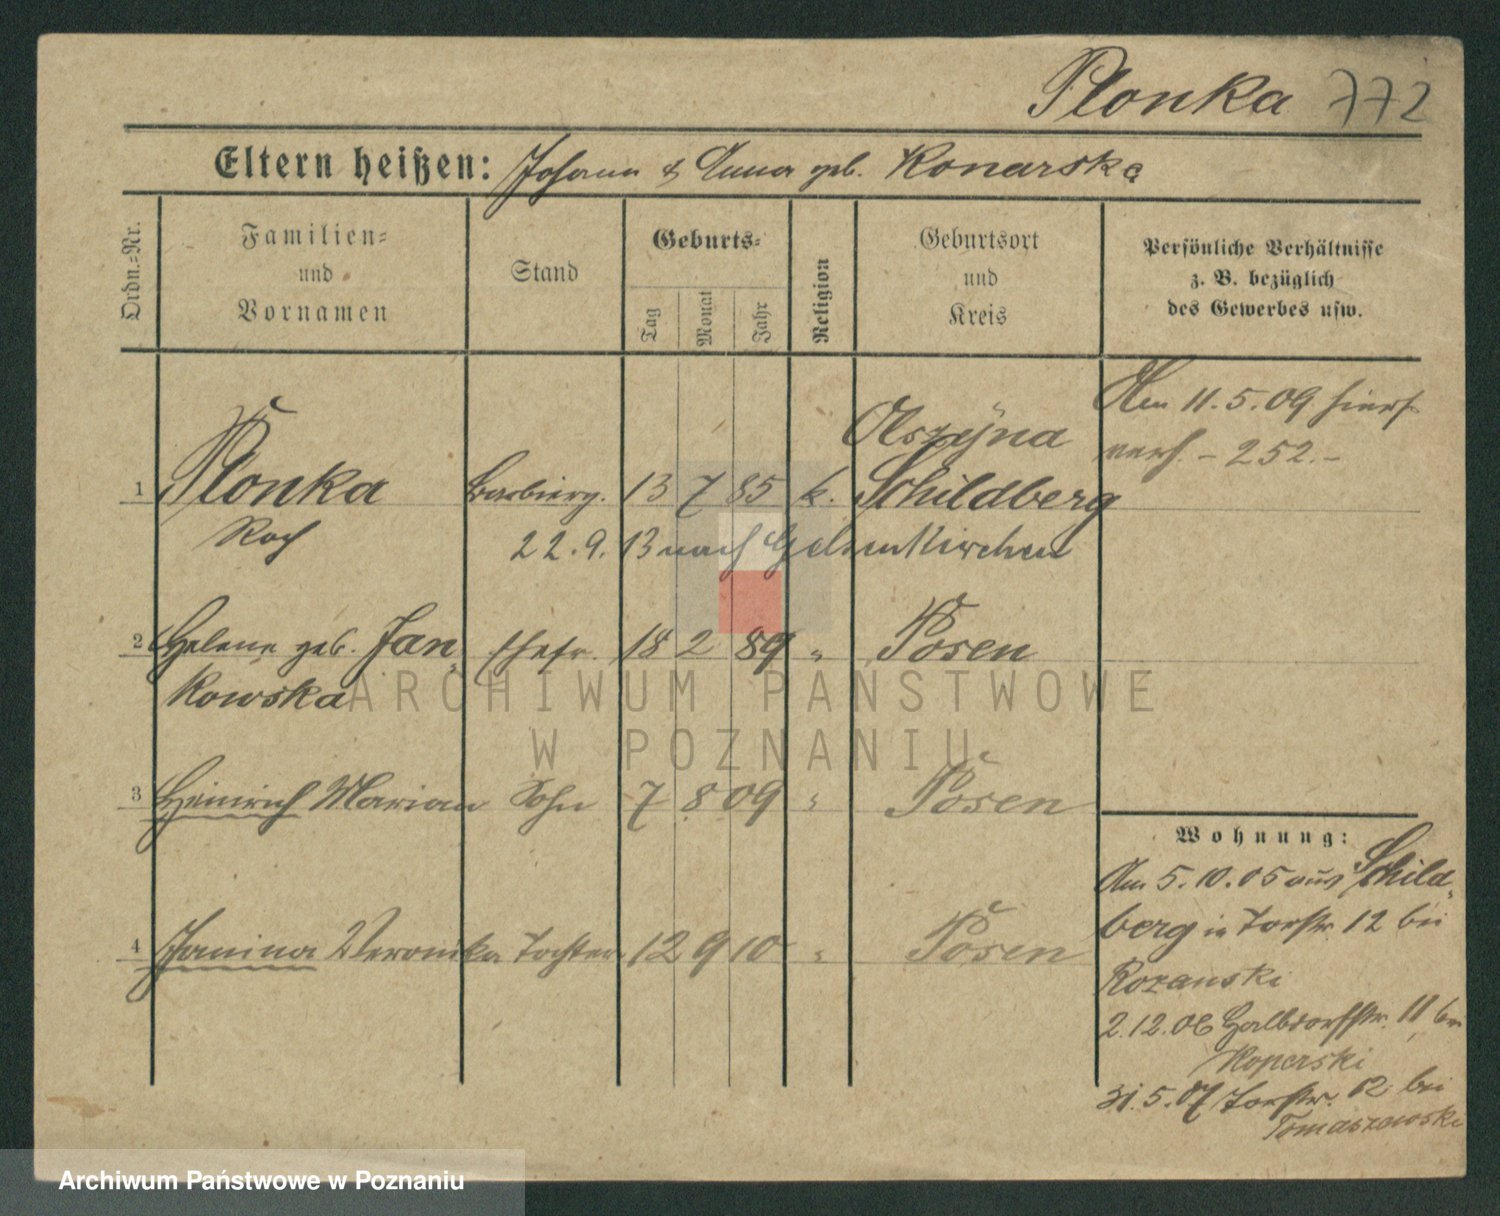 Plonka 772
Eltern heißen: Johann & Anna geb. Konarska
Ordn.=Nr.
Familien=
und
Vornamen
Stand
Geburts=
Tag
Monat
Jahr
Religion
Geburtsort
und
Kreis
Persönliche Verhältnisse
z. B. bezüglich
des Gewerbes usw.
Am 11.5.09 hiers.
verh. - 252. -
Olszyna
1 Plonka Barbierg. 13 7 85 k. Schildberg
Roch 22.9.13 nach Gelsenkirchen
2 Helene geb. Jan= Ehefr. 18 2 89 " Posen
kowska
3 Heinrich Marian Sohn 7 8 09 " Posen
4 Janina Veronika Tochter 12 9 10 " Posen
Wohnung:
Am 5.10.05 aus Schild=
berg in Torstr. 12 bei
Rozanski
2.12.06 Halbdorfstr. 11 bei
Koperski
31.5.07 Torstr. 12 bei
Tomaszewski
ARCHIWUM PAŃSTWOWE
W POZNANIU
Archiwum Państwowe w Poznaniu